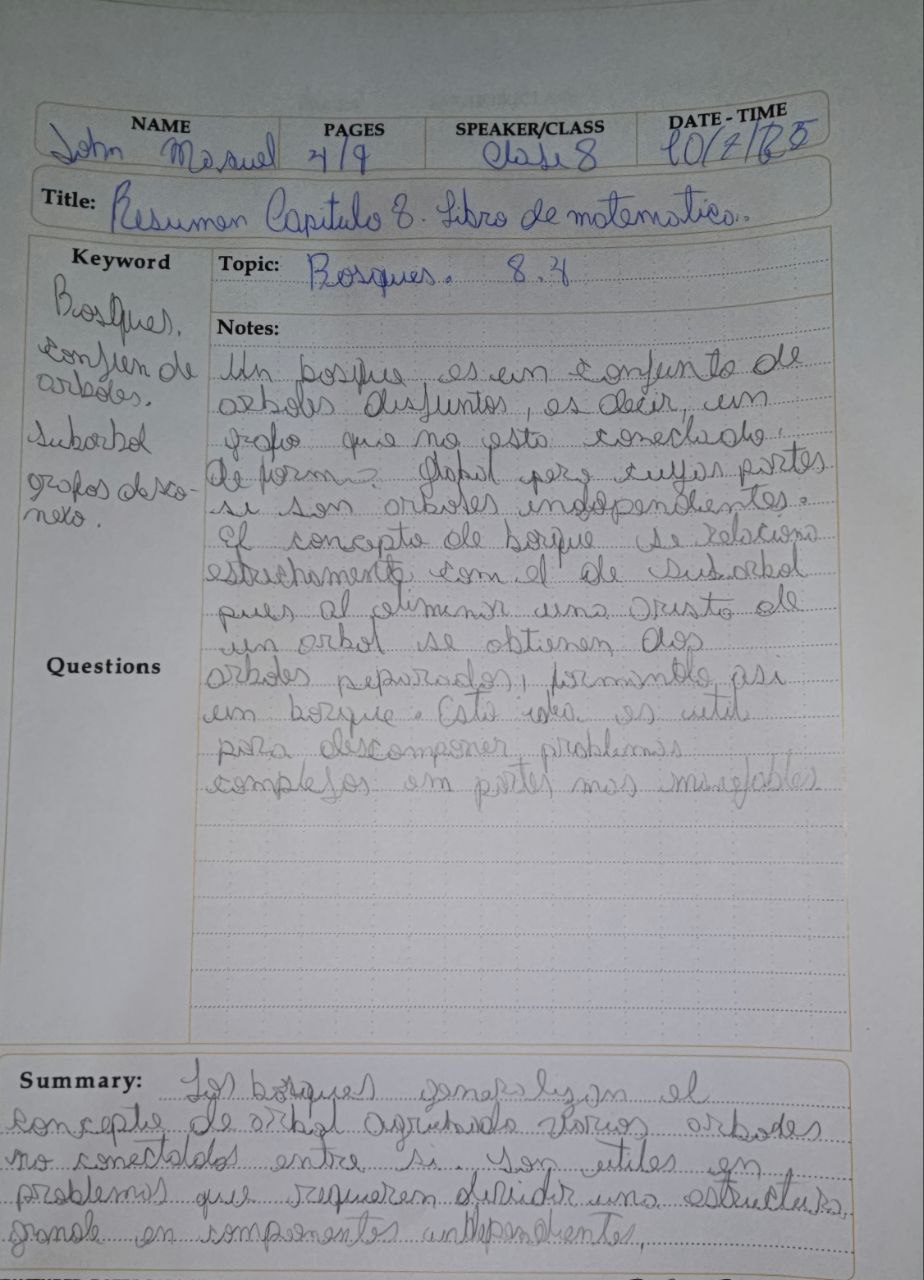 NAME PAGES SPEAKER/CLASS DATE - TIME
John Manuel 4/9 Clase 8 10/7/25
Title: Resumen Capitulo 8. Libro de matematica.
Keyword
Topic: Bosques. 8.4
Bosques.
conjun de
arboles.
Subarbol
grafos desco-
nexo.
Questions
Notes:
Un bosque es un conjunto de
arboles disjuntos, es decir, un
grafo que no esta conectado
de forma global pero cuyas partes
si son arboles independientes.
El concepto de borque se relaciona
estrechamente com el de subarbol
pues al eliminar una arista de
un arbol se obtienen dos
arboles separados, formando asi
um borque. Esta idea es util
para descomponer problemas
complejos em partes mas manejables
Summary: Los bosques generalizan el
concepto de arbol agrubado varios arboles
no conectados entre si. Son utiles en
problemas que requieren dividir una estructura
grande en componentes independientes.